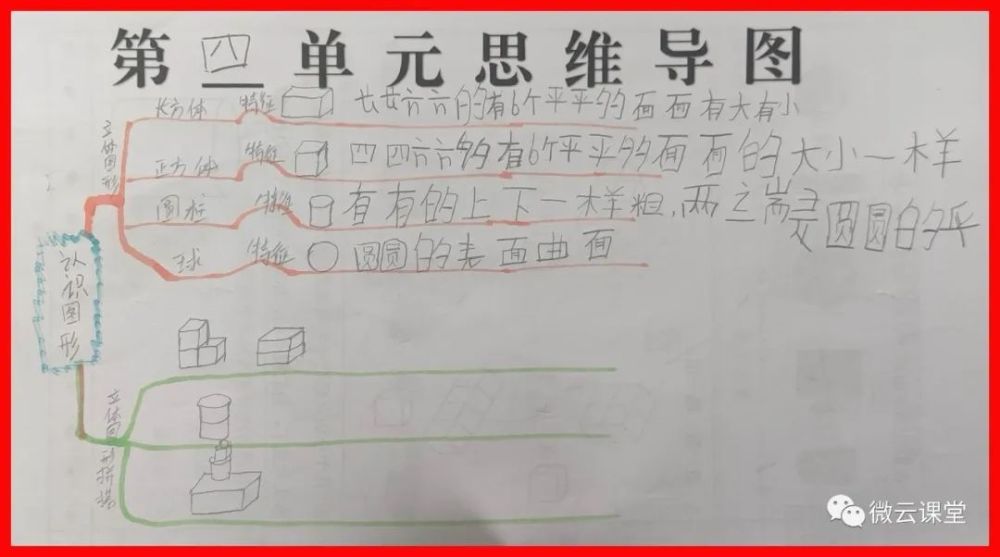 第四单元思维导图
长方体 特征 长长方方的有6个平平的面面有大有小
立体图形
正方体 特征 四四方方的有6个平平的面面的大小一样
圆柱 特征 有有的上下一样粗,两之端是圆圆的平
球 特征 圆圆的表面曲面
认识图形
立体图形拼搭
微云课堂